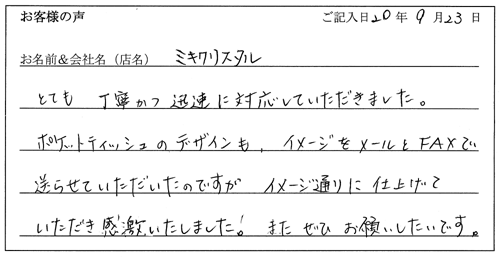 お客様の声 ご記入日20年9月23日
お名前&会社名(店名) ミキクリスタル
とても 丁寧かつ 迅速に対応していただきました。
ポケットティッシュのデザインも、イメージをメールとFAXで
送らせていただいたのですが イメージ通りに 仕上げて
いただき感激いたしました! また ぜひ お願いしたいです。